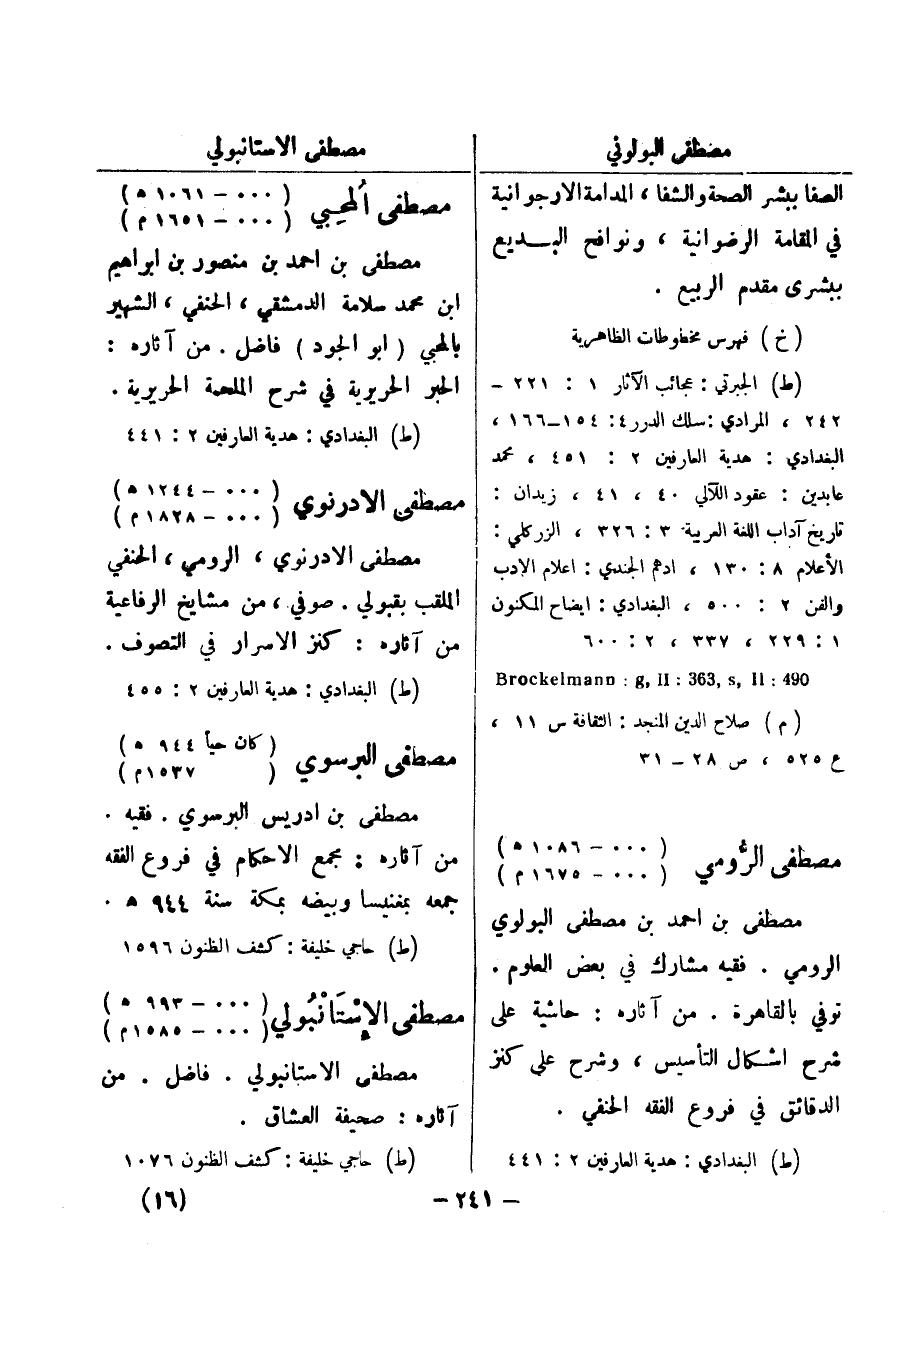 مصطفى البولوني
الصفا ببشر الصحة والشفا ، المدامة الارجوانية
في المقامة الرضوانية ، ونوافح البـــديع
ببشرى مقدم الربيع .
( خ ) فهرس مخطوطات الظاهرية
(ط) الجبرتي : عجائب الآثار ١ : ٢٢١ –
٢٤٢ ، المرادي : سلك الدرر ٤ : ١٥٤–١٦٦ ،
البغدادي : هدية العارفين ٢ : ٤٥١ ، محمد
عابدين : عقود اللآلي ٤٠ ، ٤١ ، زيدان :
تاريخ آداب اللغة العربية ٣ : ٣٢٦ ، الزركلي :
الأعلام ٨ : ١٣٠ ، ادهم الجندي : اعلام الادب
والفن ٢ : ٥٠٠ ، البغدادي : ايضاح المكنون
١ : ٢٢٩ ، ٣٣٧ ، ٢ : ٦٠٠
Brockelmann : g, II : 363, s, II : 490
( م ) صلاح الدين المنجد : الثقافة س ١١ ،
ع ٥٢٥ ، ص ٢٨ – ٣١
مصطفى الرُّومي ( ٠٠٠ – ١٠٨٦ ه )
( ٠٠٠ – ١٦٧٥ م )
مصطفى بن احمد بن مصطفى البولوي
الرومي . فقيه مشارك في بعض العلوم .
توفي بالقاهرة . من آثاره : حاشية على
شرح اشكال التأسيس ، وشرح على كنز
الدقائق في فروع الفقه الحنفي .
(ط) البغدادي : هدية العارفين ٢ : ٤٤١
مصطفى الاستانبولي
مصطفى اُلمحِبي ( ٠٠٠ – ١٠٦١ ه )
( ٠٠٠ – ١٦٥١ م )
مصطفى بن احمد بن منصور بن ابراهيم
ابن محمد سلامة الدمشقي ، الحنفي ، الشهير
بالمحبي ( ابو الجود ) فاضل . من آثاره :
الحبر الحريرية في شرح الملحة الحريرية .
(ط) البغدادي : هدية العارفين ٢ : ٤٤١
مصطفى الادرنوي ( ٠٠٠ – ١٢٤٤ ه )
( ٠٠٠ – ١٨٢٨ م )
مصطفى الادرنوي ، الرومي ، الحنفي
الملقب بقبولي . صوفي ، من مشايخ الرفاعية
من آثاره : كنز الاسرار في التصوف .
(ط) البغدادي : هدية العارفين ٢ : ٤٥٥
مصطفى البرسوي ( كان حياً ٩٤٤ ه )
( ١٥٣٧ م )
مصطفى بن ادريس البرسوي . فقيه .
من آثاره : مجمع الاحكام في فروع الفقه
جمعه بمغنيسا وبيضه بمكة سنة ٩٤٤ ه .
(ط) حاجي خليفة : كشف الظنون ١٥٩٦
مصطفى الإسْتَانْبُولي ( ٠٠٠ – ٩٩٣ ه )
( ٠٠٠ – ١٥٨٥ م )
مصطفى الاستانبولي . فاضل . من
آثاره : صحيفة العشاق .
(ط) حاجي خليفة : كشف الظنون ١٠٧٦
– ٢٤١ –
(١٦)